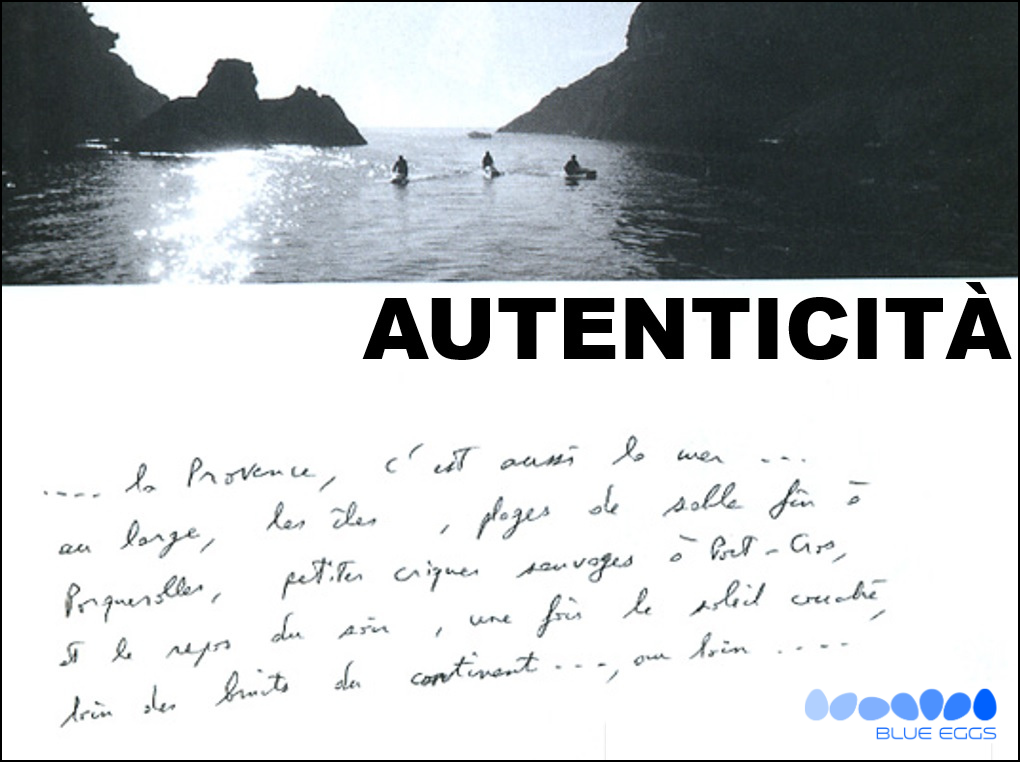 AUTENTICITÀ
.... la Provence, c'est aussi la mer ...
au large, les îles , plages de sable fin à
Porquerolles, petites criques sauvages à Port-Cros,
et le repos du soir , une fois le soleil couché,
loin des bruits du continent ..., au loin ....
BLUE EGGS